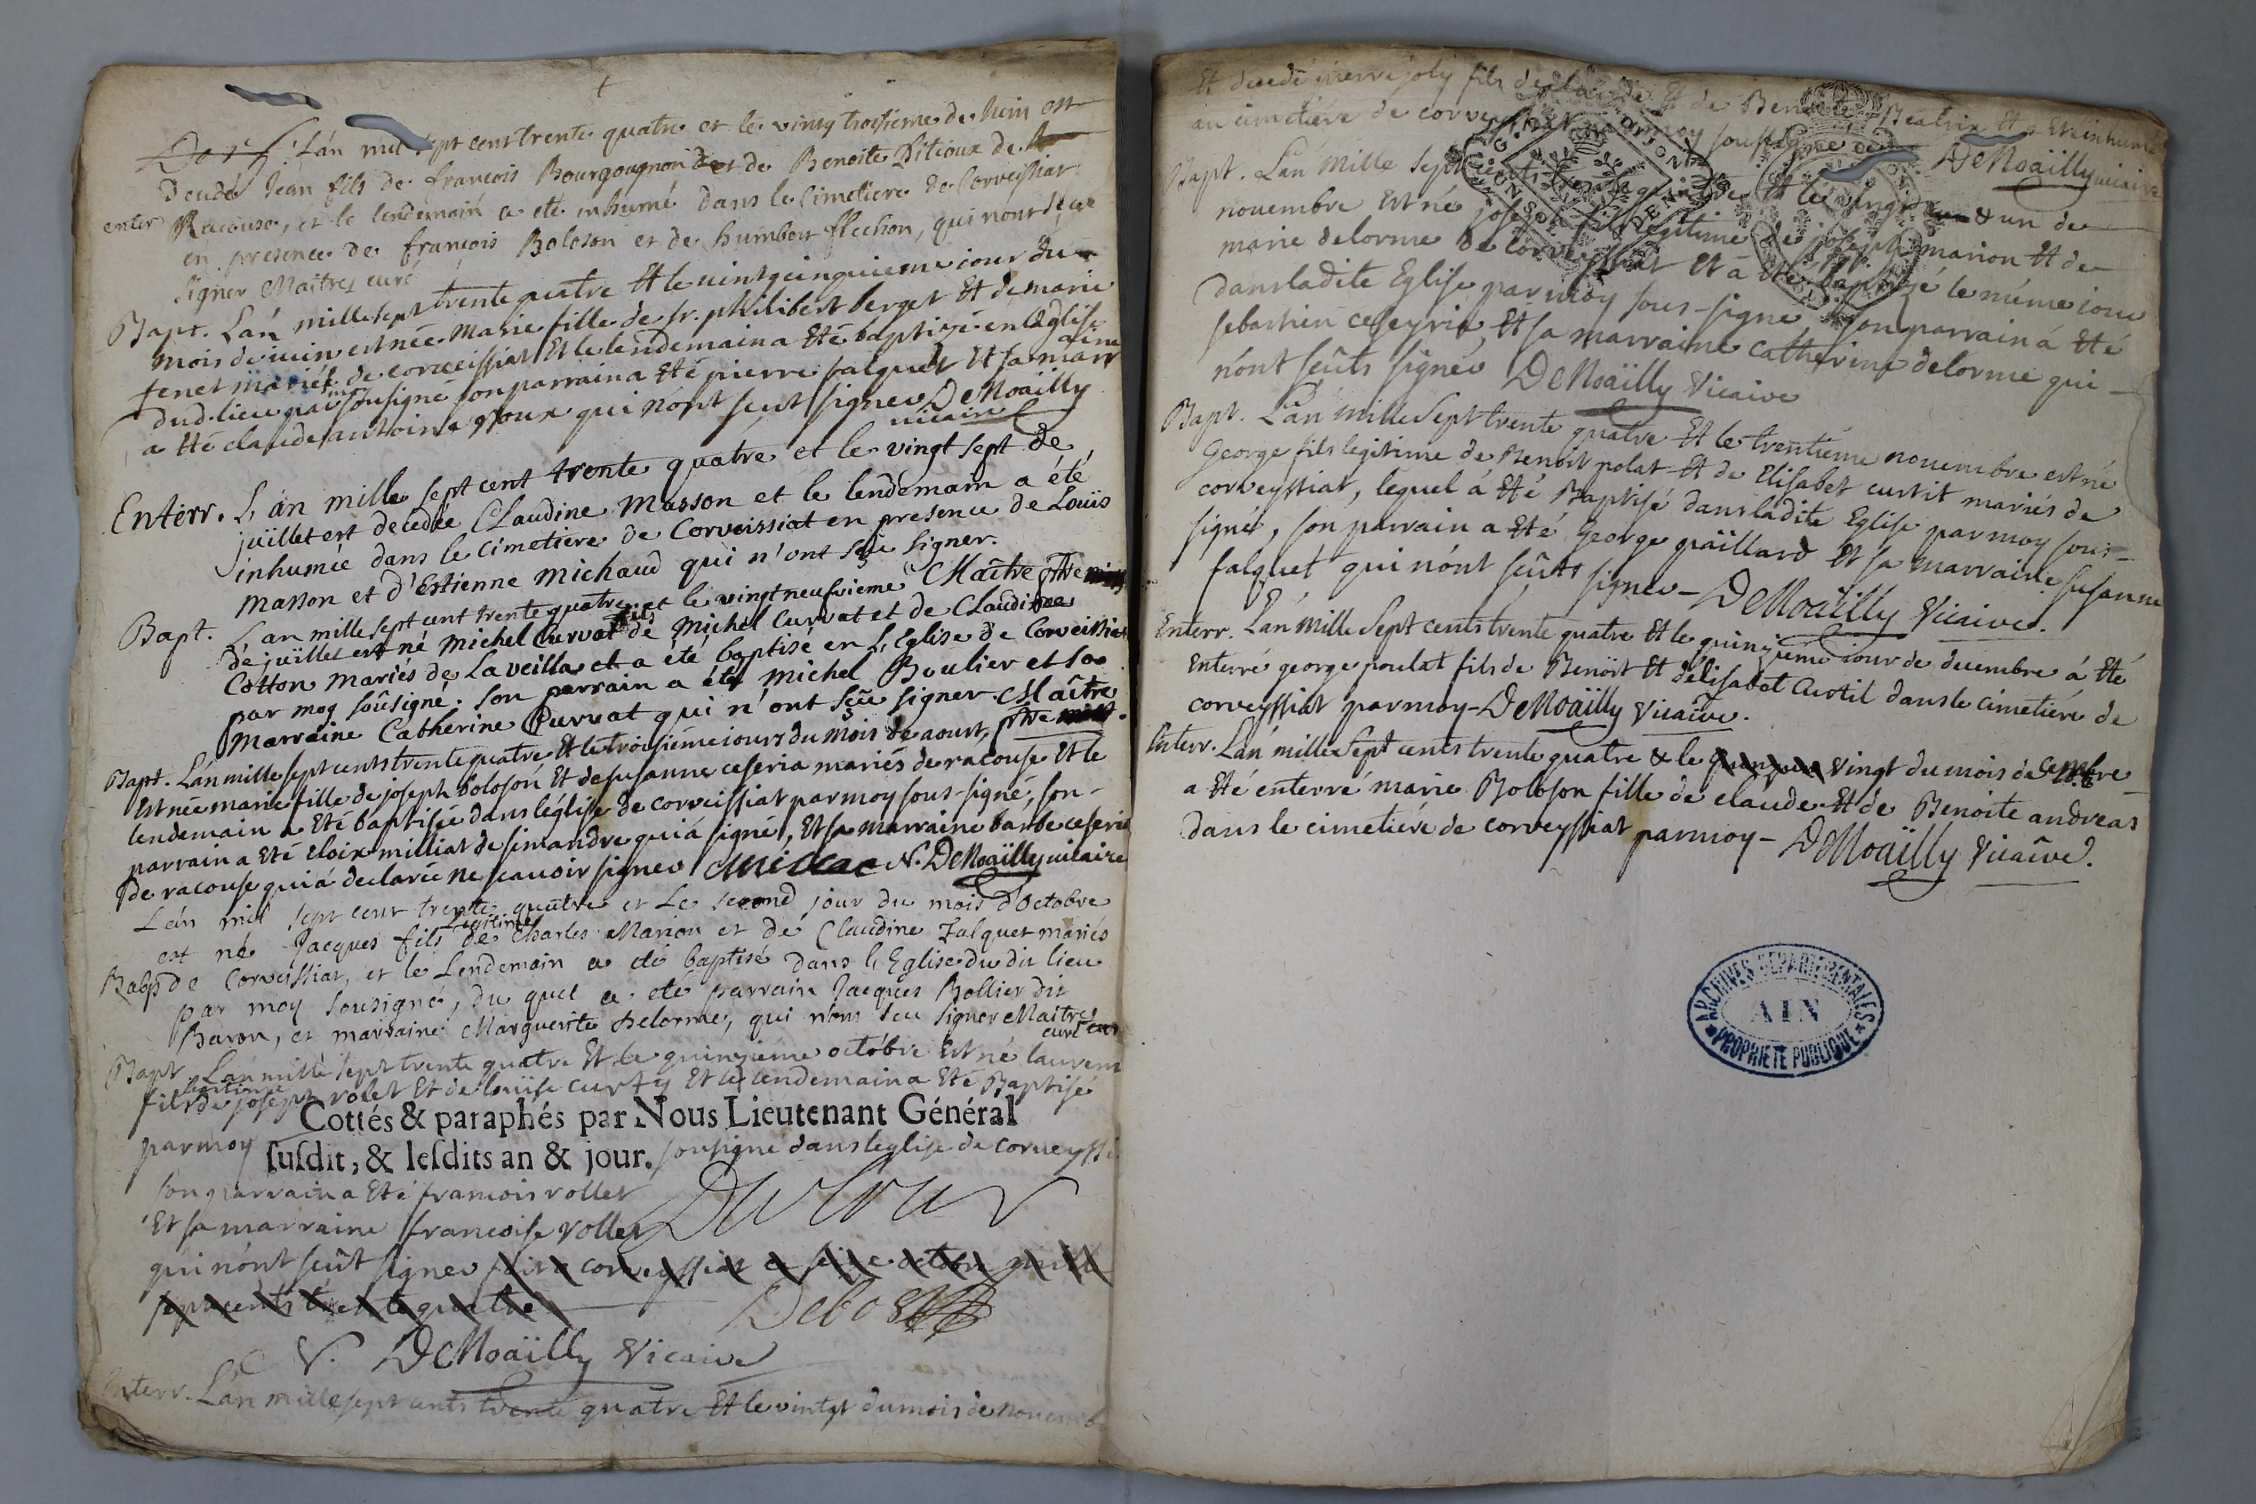 L'an mil sept cent trente quatre et le vingt troisieme de Juin est
Decedé Jean fils de francois Bourgougnon et de Benoite Pitioux de
enter Racouse, et le lendemain a eté inhumé dans le Cimetiere de Corveissiat
en presence de francois Boloson et de humbert flechon, qui n'ont sçu
signer Maîtrez curé
Bapt. L'an mille sept trente quatre Et le vint cinquieme iour du
mois de iuin est née Marie fille de sr. philibert berget Et de marie
tenet mariés de corveissiat Et le lendemain a Eté baptizé en L'Eglise
dud. lieu par moy sousigné son parrain a Eté pierre falquet Et sa marr aine
a Eté claude antoine qui n'ont sçut signer DeMoäilly
vicaire
Enterr. L'an mille sept cent trente quatre et le vingt sept de
juillet est decedée Claudine Masson et le lendemain a été
inhumée dans le Cimetiere de Corveissiat en presence de Louïs
Masson et d'Estienne Michaud qui n'ont sçu signer.
Maître ptre
Bapt. L'an mille sept cent trente quatre et le vingt neufvieme
de juillet est né Michel Curvat fils de Michel Curvat et de Claudine
Cotton Mariés de La veilla et a été baptisé en L'Eglise de Corveissiat
par moy soûsigné. Son parrain a été Michel Boulier et sa
Marraine Catherine Curvat qui n'ont sçu signer Maître
ptre
Bapt. L'an mille sept cents trente quatre Et le troisiéme iour du mois de aoust,
Est née marie fille de joseph boloson Et de susanne ceseria mariés de racouse Et le
lendemain a Eté baptisée dans l'église de corveissiat par moy sous-signé, son-
parrain a Eté Eloix milliat de simandre qui á signé, Et sa marraine barbe ceseria
de racouse qui á declaré ne scauoir signer N. DeMoäilly vicaire
L'an mil sept cent trente quatre et Le second jour du mois d'Octobre
est né Jacques fils Legitime de Charles Marion et de Claudine Falquet mariés
Babp de Corveissiat, et le Lendemain a eté baptisé dans L'Eglise du dit lieu
par moy sousigné, du quel a eté parrain Jacques Bollier dit
Baron, et marraine Marguerite Delorme, qui n'ont sçu signer Maîtrez
curé
Bapt L'an mille sept trente quatre Et le quinziéme octobre Est né laurent
fils legitime de joseph rolet Et de louïse curty Et le lendemain a Eté Baptisé
Cottés & paraphés par Nous Lieutenant Général
par moy ſuſdit, & leſdits an & jour. sousigné dans leglise de corveyssi
son parrain a Eté francois rollet
Et sa marraine francoise rollet
qui n'ont sçût signer fait a corveyssiat ce seize octobre mille
sept cents trente quatre
V. DeMoäilly Vicaire
Enterr. L'an mille sept cents trente quatre Et le vintgt du mois de nouembre
Et decedé pierre joly fils de claude Et de Benoite Beatrix Et a Eté inhumé
au cimetiére de corveyssiat par moy soussigné
DeMoäilly vicaire
Bapt. L'an Mille sept cents trente quatre Et le vingt & un de
nouembre Est né joseph fils legitime de joseph marion Et de
marie delorme de corveyssiat Et a Eté baptizé le même iour
dans ladite Eglise par moy sous-signé, son parrain á Eté
sebastien ceseyria, Et sa marraine catherine delorme qui
n'ont sçûts signer DeMoäilly Vicaire
Bapt. L'an mille sept trente quatre Et le trentiéme nouembre est né
George fils legitime de Benoît polat Et de Elisabet curtit mariés de
corveyssiat, lequel á Eté Baptisé dans ladite Eglise par moy sous-
signé, son parrain a Eté George gaïllard Et sa marraine susanne
falquet qui n'ont sçûts signer- DeMoäilly Vicaire.
Enterr. L'an Mille Sept cents trente quatre Et le quinziéme iour de decembre á Eté
Enterré george poulat fils de Benoît Et d'Elisabet Curtil dans le cimetiére de
corveyssiat par moy- DeMoäilly Vicaire.
Enterr. L'an mille Sept cents trente quatre & le vingt du mois de decembre
a Eté enterré marie Boloson fille de claude Et de Benoite andreas
dans le cimetiére de corveyssiat par moy- DeMoäilly Vicaire.
ARCHIVES DEPARTEMENTALES
AIN
PROPRIETE PUBLIQUE